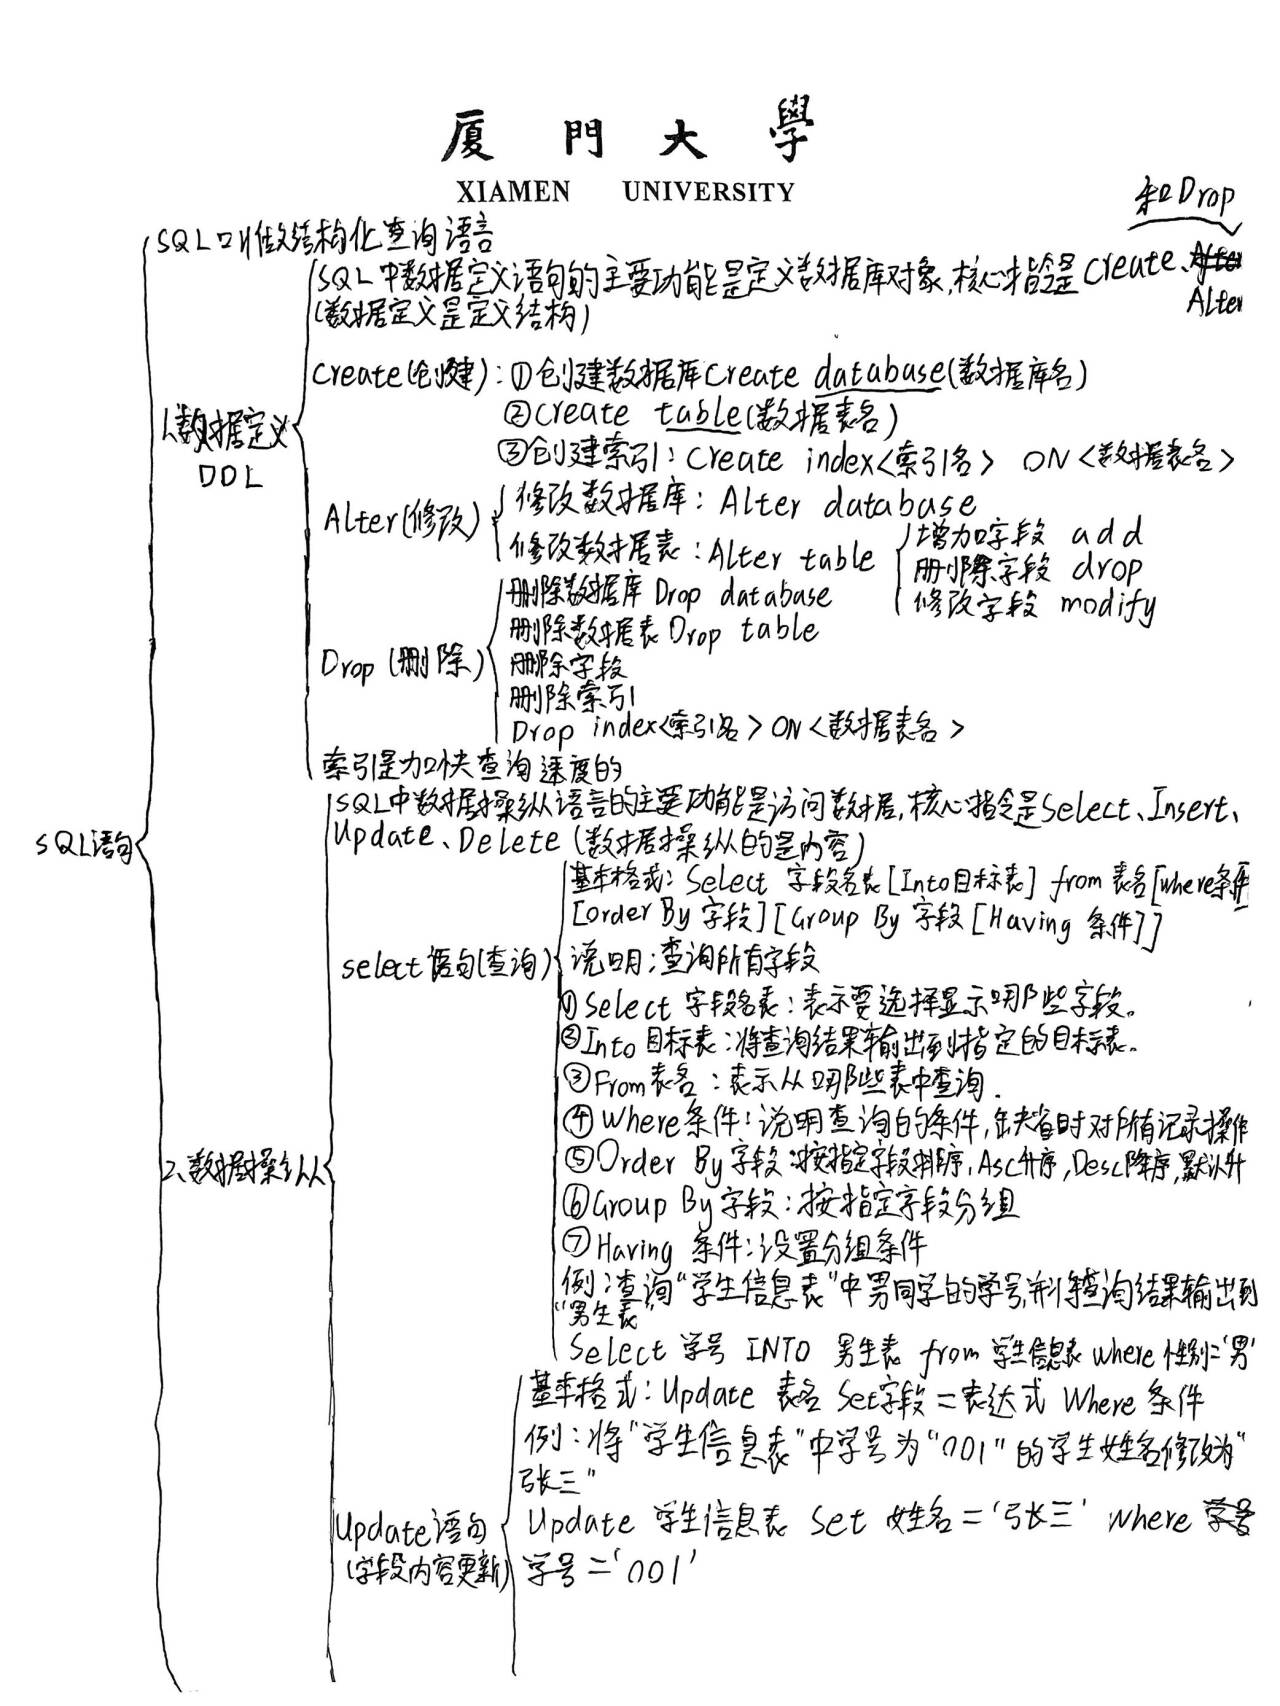 厦門大學
XIAMEN UNIVERSITY
和Drop
SQL叫做结构化查询语言
SQL中数据定义语句的主要功能是定义数据库对象,核心指令是Create、After
(数据定义是定义结构) Alter
Create(创建):①创建数据库Create database(数据库名)
②Create table(数据表名)
1、数据定义
③创建索引:Create index<索引名> ON<数据表名>
DDL
Alter(修改)
修改数据库:Alter database
修改数据表:Alter table
增加字段 add
删除字段 drop
修改字段 modify
删除数据库 Drop database
删除数据表 Drop table
Drop(删除)
删除字段
删除索引
Drop index<索引名>ON<数据表名>
索引是加快查询速度的
SQL中数据操纵语言的主要功能是访问数据,核心指令是Select、Insert、
SQL语句
Update、Delete(数据操纵的是内容)
基本格式:Select 字段名表[Into目标表] from 表名[where条件]
[order By 字段][Group By 字段[Having 条件]]
select语句(查询)
说明:查询所有字段
①Select 字段名表:表示要选择显示哪些字段。
②Into目标表:将查询结果输出到指定的目标表。
③From表名:表示从哪些表中查询.
④Where条件:说明查询的条件,缺省时对所有记录操作
2、数据操纵
⑤Order By字段:按指定字段排序,Asc升序,Desc降序,默认升
⑥Group By字段:按指定字段分组
⑦Having 条件:设置分组条件
例:查询“学生信息表”中男同学的学号,并将查询结果输出到
“男生表”
Select 学号 INTO 男生表 from 学生信息表 where 性别='男'
基本格式:Update 表名 Set字段=表达式 Where 条件
例:将“学生信息表”中学号为“001”的学生姓名修改为“
张三”
Update语句
Update 学生信息表 Set 姓名='张三' where 学号
(字段内容更新)
学号='001'